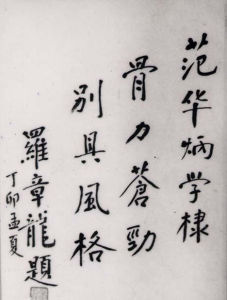 范华炳学棣
骨力蒼勁
別具風格
羅章龍題
丁卯孟夏